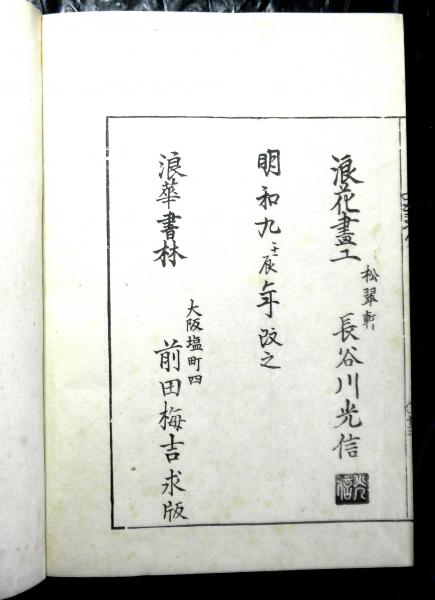 浪花畫工 松翠軒 長谷川光信
光信
明和九壬辰年改之
浪華書林 大阪塩町四 前田梅吉求版